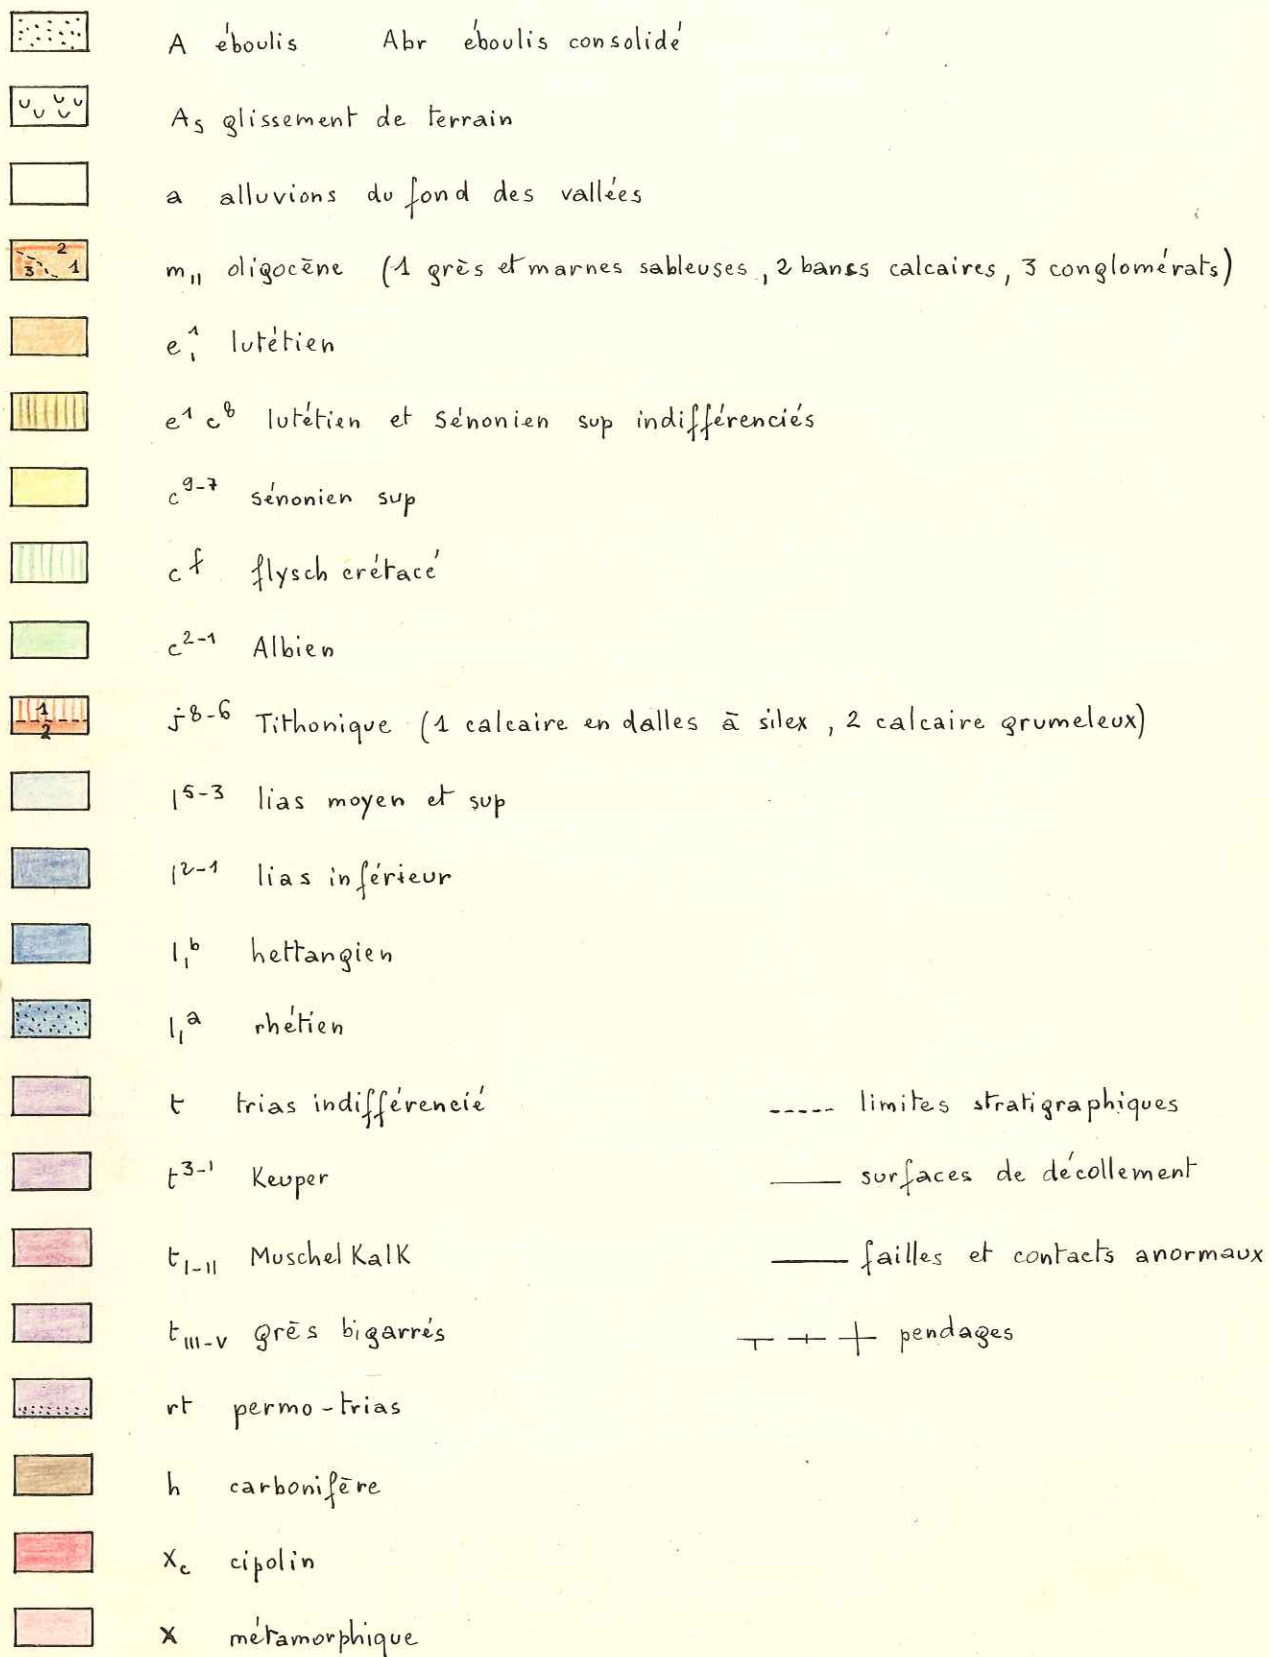 A éboulis Abr éboulis consolidé
As glissement de terrain
a alluvions du fond des vallées
2 3 1
m₁₁ oligocène (1 grès et marnes sableuses, 2 bancs calcaires, 3 conglomérats)
e₁¹ lutétien
e¹ c⁸ lutétien et Sénonien sup indifférenciés
c⁹⁻⁷ sénonien sup
c f flysch crétacé
c²⁻¹ Albien
1 2
j⁸⁻⁶ Tithonique (1 calcaire en dalles à silex, 2 calcaire grumeleux)
l⁵⁻³ lias moyen et sup
l²⁻¹ lias inférieur
l₁ᵇ hettangien
l₁ᵃ rhétien
t trias indifférencié
t³⁻¹ Keuper
t I-II MuschelKalK
t III-V grès bigarrés
rt permo-trias
h carbonifère
Xc cipolin
X métamorphique
limites stratigraphiques
surfaces de décollement
failles et contacts anormaux
pendages